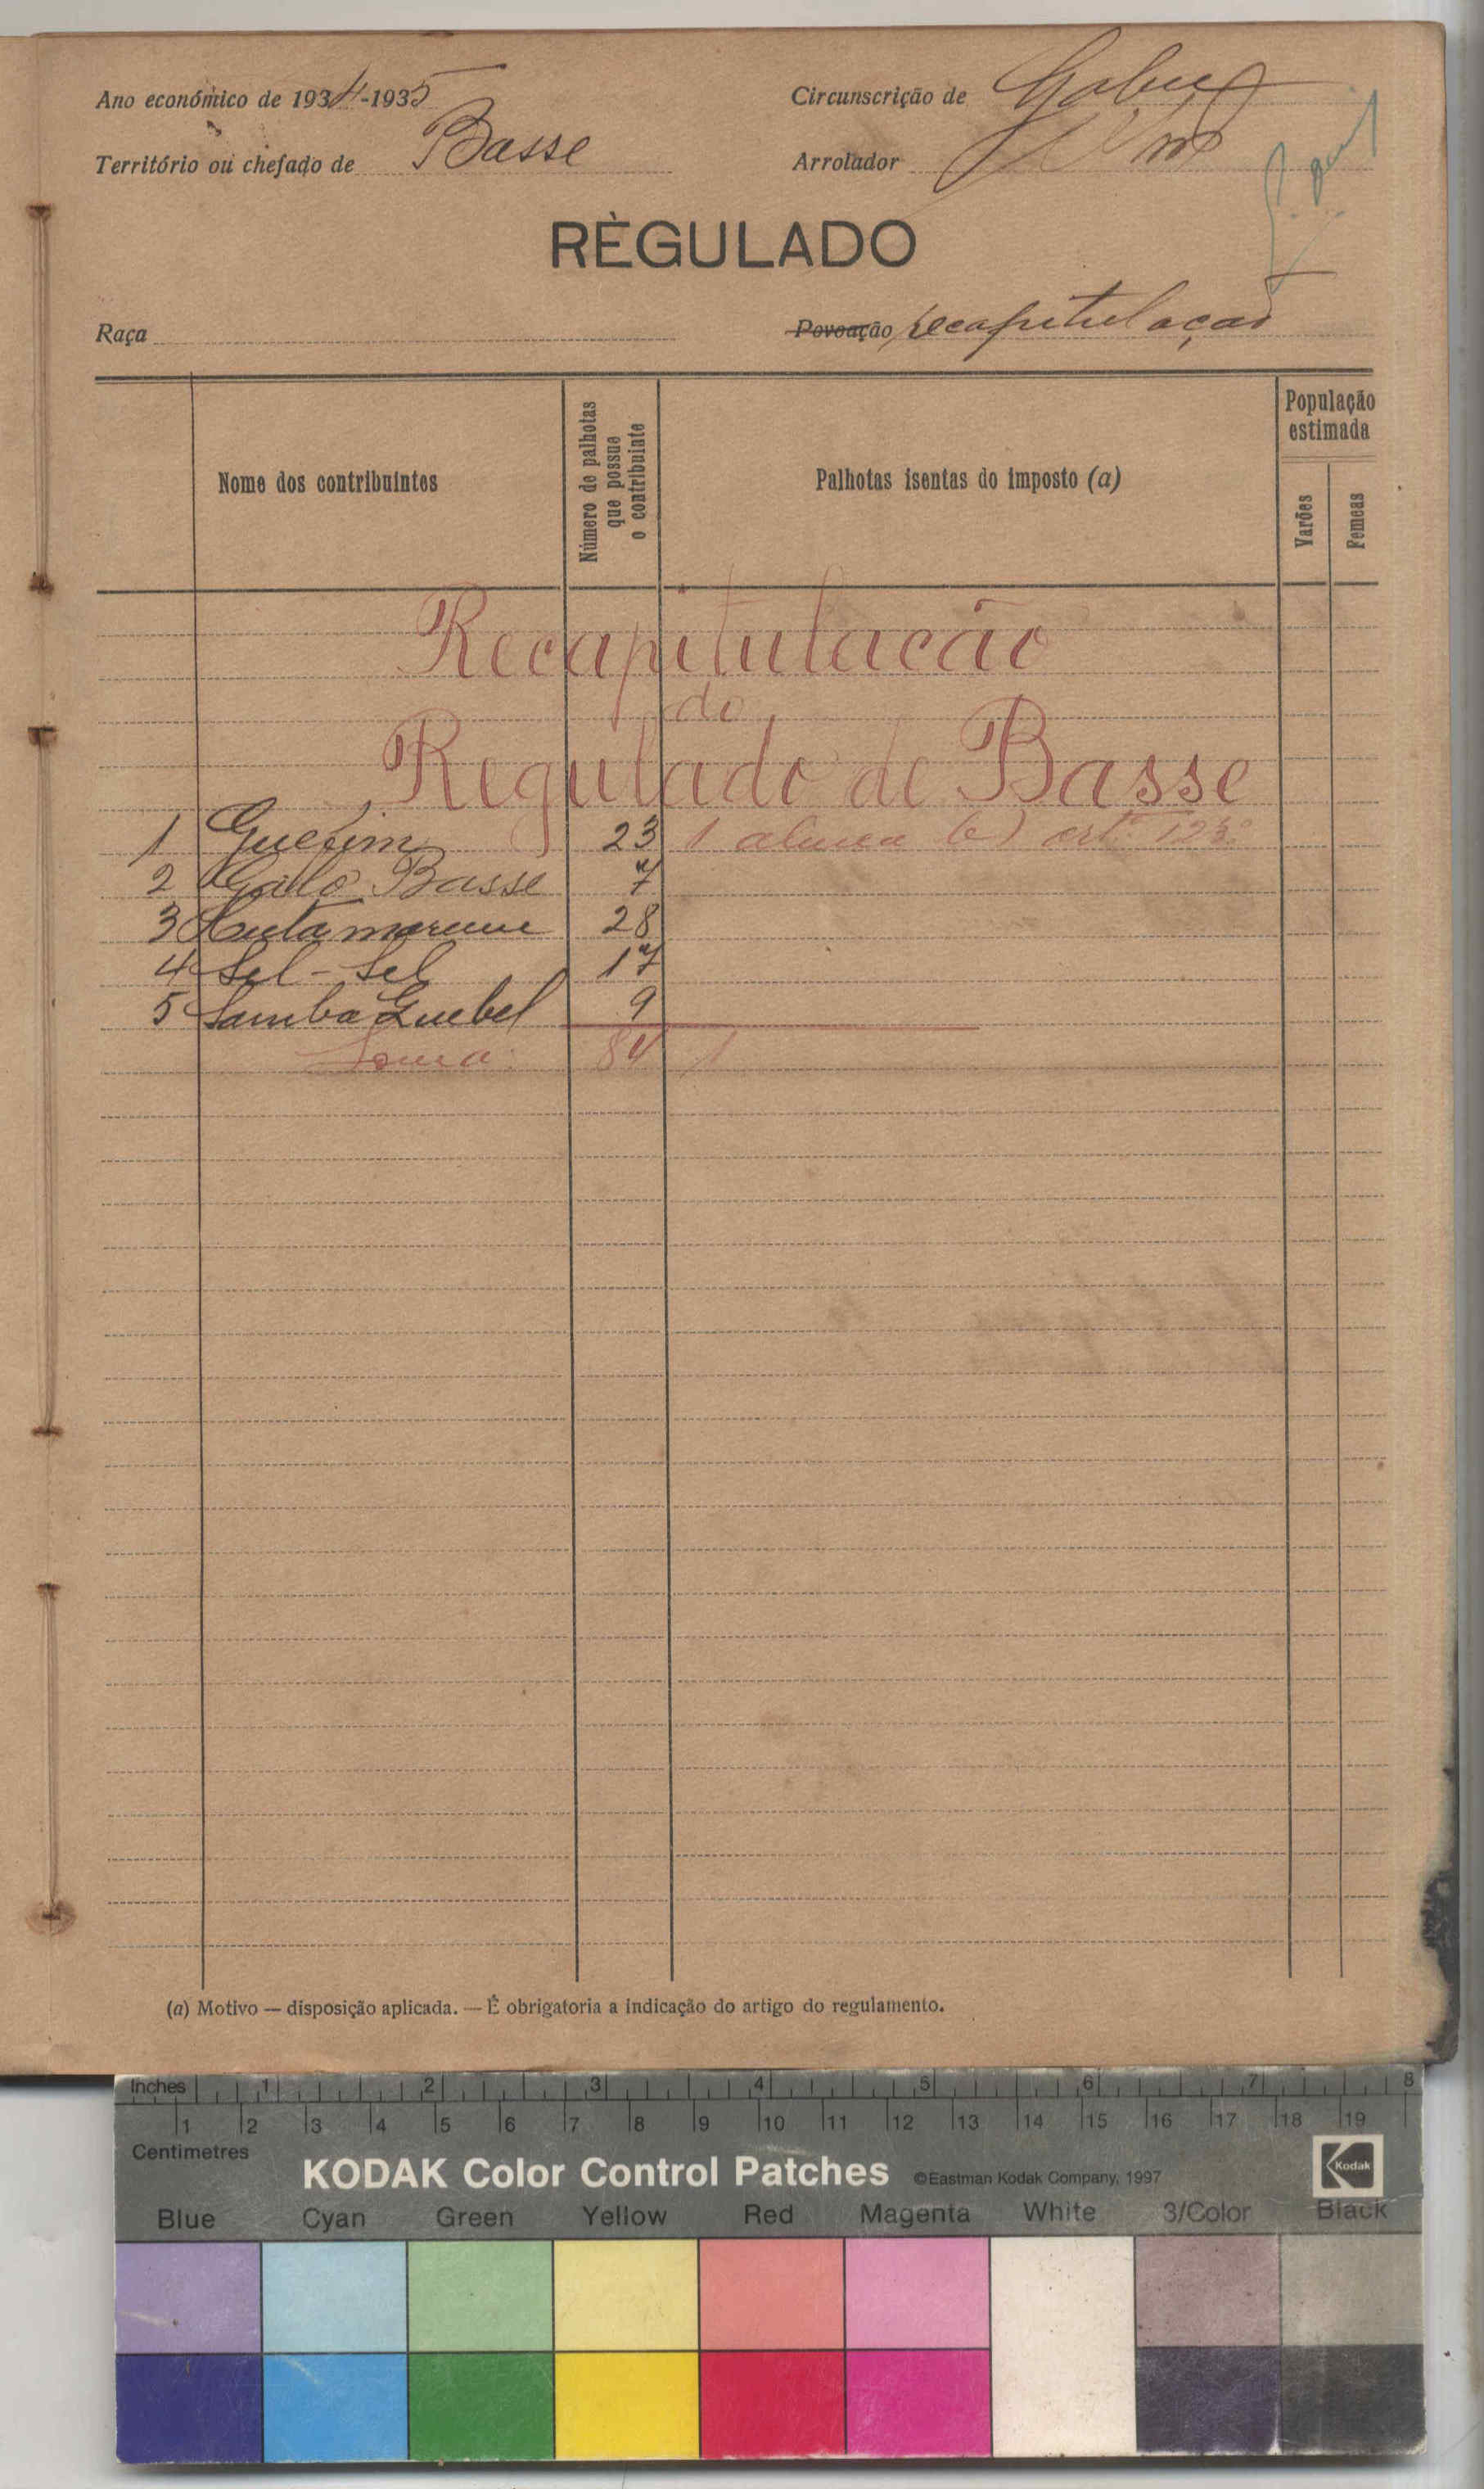 Ano económico de 1934-1935
Circunscrição de Gabu
Território ou chefado de Basse
Arrolador
RÈGULADO
Raça
Povoação recapitulação
Nome dos contribuintes
Número de palhotas que possue o contribuinte
Palhotas isentas do imposto (a)
População estimada
Varões
Femeas
Recapitulação
do
Regulado de Basse
1 Guerim 23 1 alinea b) artº 123º
2 Basse 7
3 28
4 Sel-Sel 17
5 Samba Guebel 9
Soma 84 1
(a) Motivo — disposição aplicada. — É obrigatoria a indicação do artigo do regulamento.
Inches 1 2 3 4 5 6 7 8
1 2 3 4 5 6 7 8 9 10 11 12 13 14 15 16 17 18 19
Centimetres
KODAK Color Control Patches ©Eastman Kodak Company, 1997 Kodak
Blue Cyan Green Yellow Red Magenta White 3/Color Black